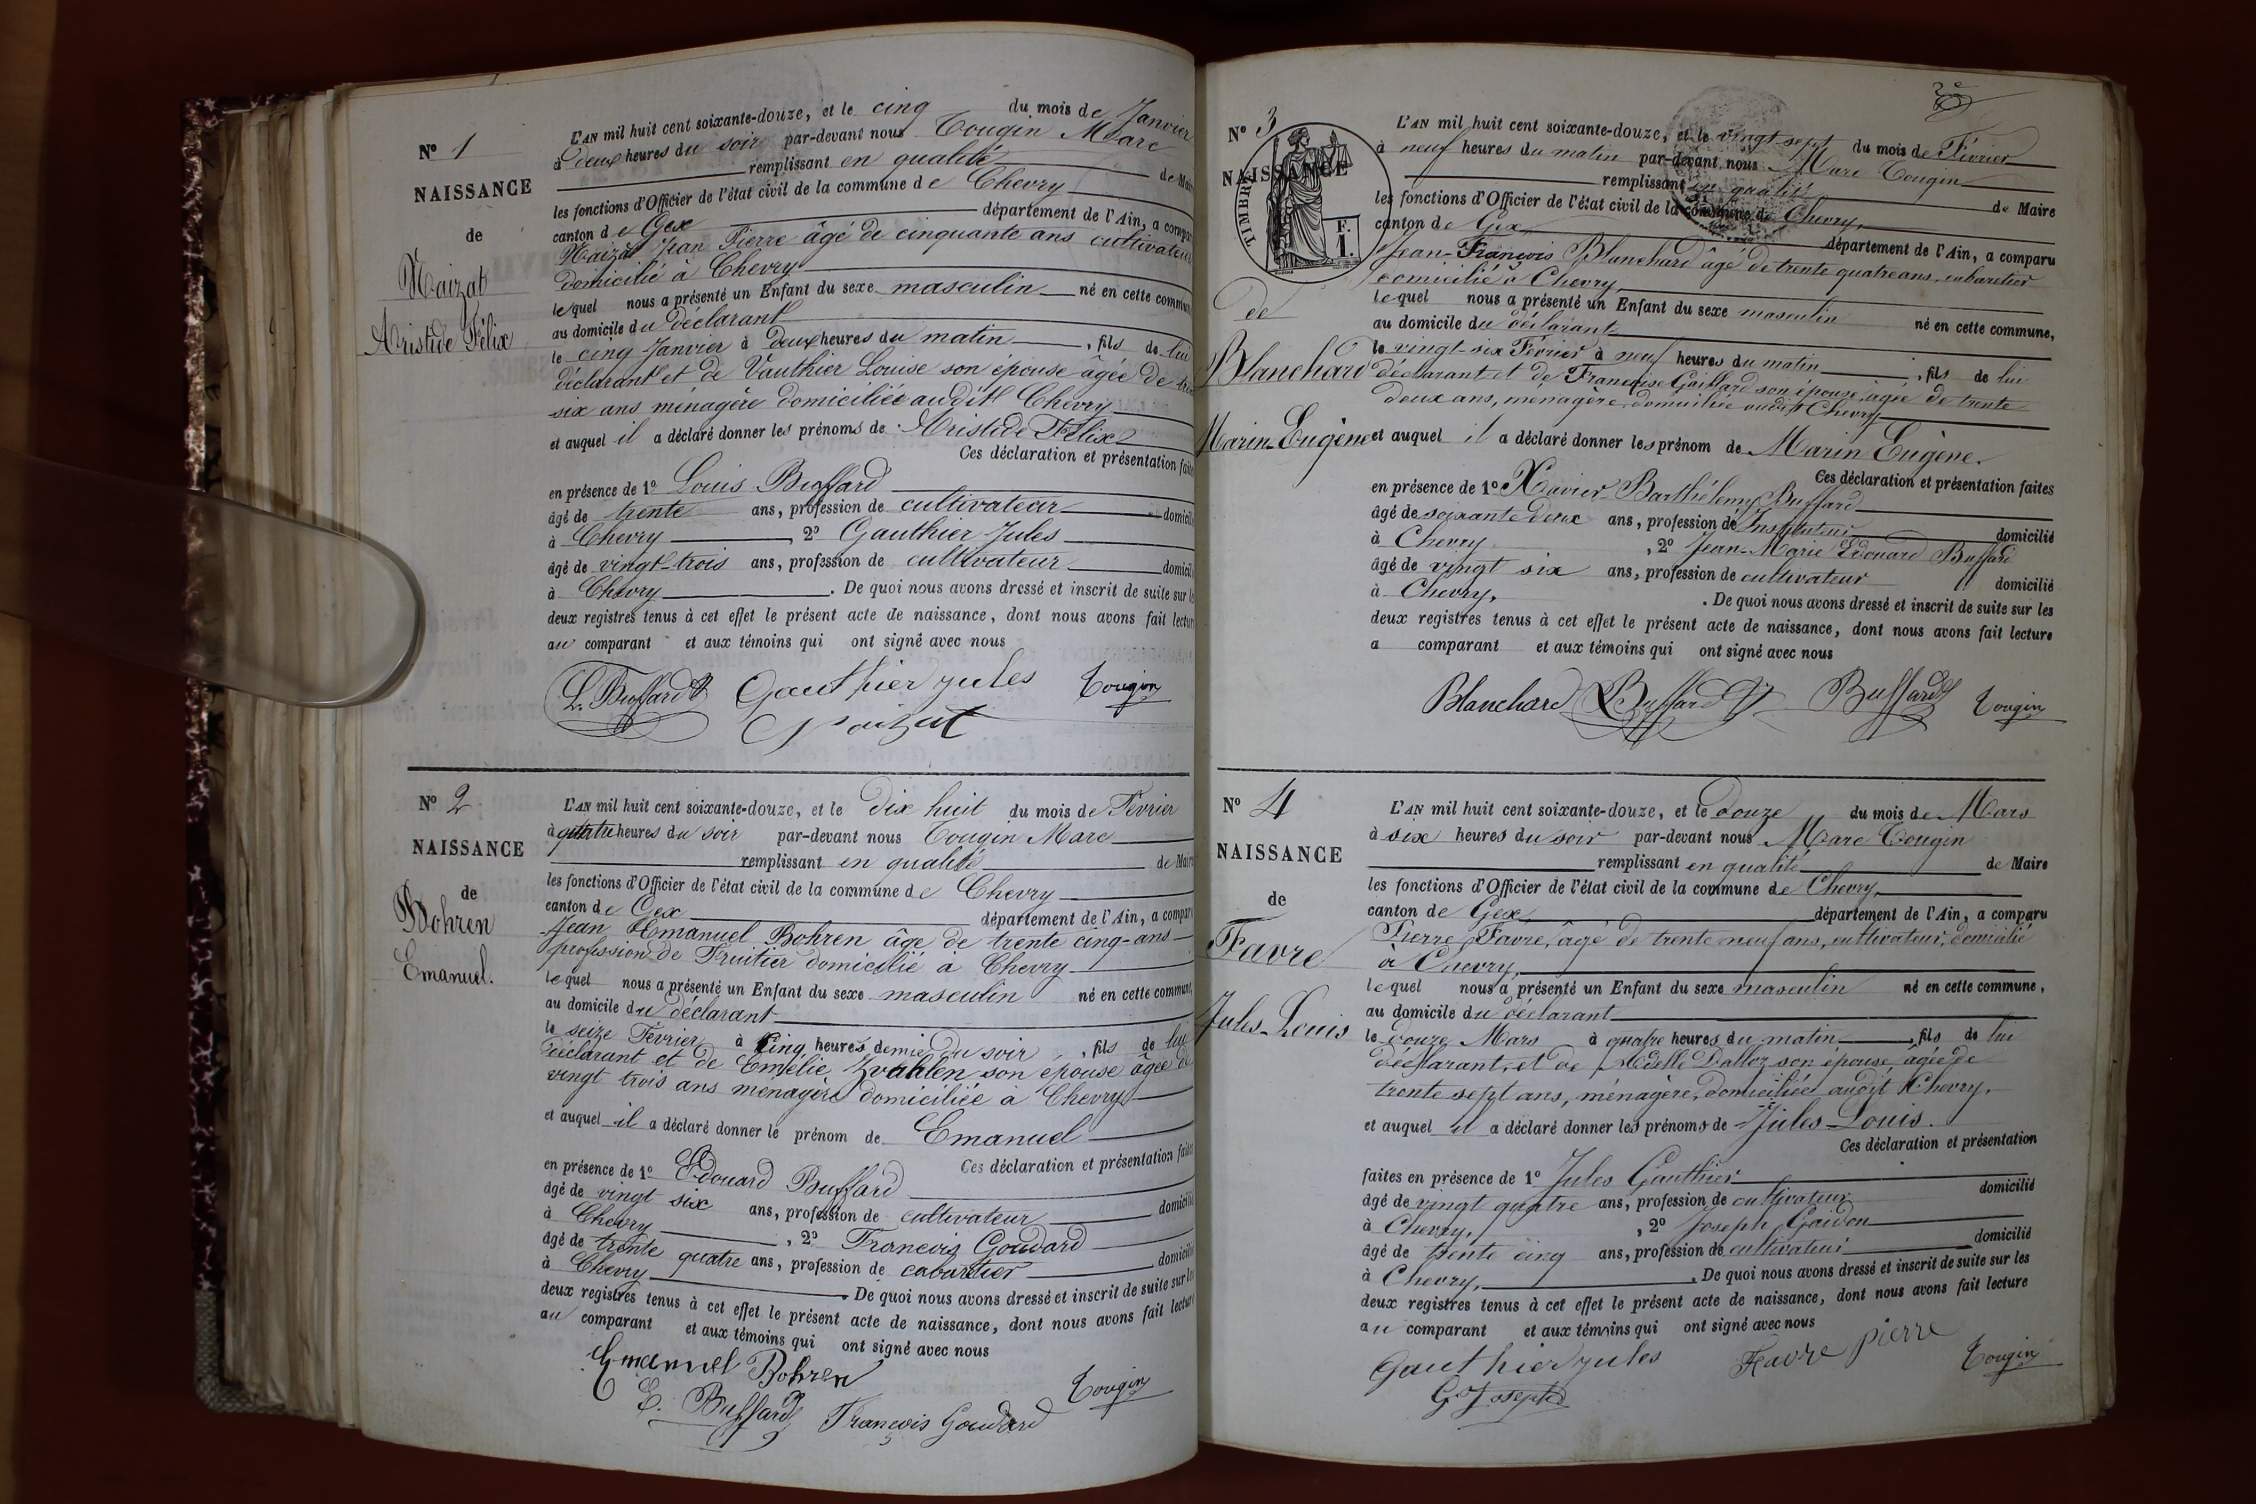 N° 1
NAISSANCE
de
Naizat
Aristide Félix
L'AN mil huit cent soixante-douze, et le cinq du mois de Janvier
à deux heures du soir par-devant nous Tougin Marc
remplissant en qualité de Maire
les fonctions d'Officier de l'état civil de la commune de Chevry
canton de Gex département de l'Ain, a compar
Naizat Jean Pierre âgé de cinquante ans cultivateur
domicilié à Chevry
lequel nous a présenté un Enfant du sexe masculin né en cette commun
au domicile du déclarant
le cinq Janvier à deux heures du matin, fils de lui
déclarant et de Vauthier Louise son épouse âgée de
six ans ménagère domiciliée audit Chevry
et auquel il a déclaré donner les prénoms de Aristide Félix
Ces déclaration et présentation faites
en présence de 1° Louis Buffard
âgé de trente ans, profession de cultivateur domicili
à Chevry, 2° Gauthier Jules
âgé de vingt-trois ans, profession de cultivateur domicili
à Chevry. De quoi nous avons dressé et inscrit de suite sur le
deux registres tenus à cet effet le présent acte de naissance, dont nous avons fait lectur
au comparant et aux témoins qui ont signé avec nous
L. Buffard Gauthier jules Tougin
Naizat
N° 2
NAISSANCE
de
Bohren
Emanuel.
L'AN mil huit cent soixante-douze, et le dix huit du mois de Février
à quatre heures du soir par-devant nous Tougin Marc
remplissant en qualité de Maire
les fonctions d'Officier de l'état civil de la commune de Chevry
canton de Gex département de l'Ain, a compar
Jean Emanuel Bohren âge de trente cinq-ans
profession de Fruitier domicilié à Chevry
lequel nous a présenté un Enfant du sexe masculin né en cette commune,
au domicile du déclarant
le seize Février à cinq heures demie du soir, fils de lui
déclarant et de Emélie Zvahlen son épouse âgée de
vingt trois ans ménagère domiciliée à Chevry
et auquel il a déclaré donner le prénom de Emanuel
Ces déclaration et présentation faites
en présence de 1° Edouard Buffard
âgé de vingt six ans, profession de cultivateur domicilié
à Chevry, 2° Francois Goudard
âgé de trente quatre ans, profession de cabaretier domicilié
à Chevry. De quoi nous avons dressé et inscrit de suite sur les
deux registres tenus à cet effet le présent acte de naissance, dont nous avons fait lecture
au comparant et aux témoins qui ont signé avec nous
Emanuel Bohren
E. Buffard François Goudard Tougin
N° 3
NAISSANCE
TIMBRE
F.
1.
de
Blanchard
Marin-Eugène
L'AN mil huit cent soixante-douze, et le vingt-sept du mois de Février
à neuf heures du matin par-devant nous Marc Tougin
remplissant en qualité de Maire
les fonctions d'Officier de l'état civil de la commune de Chevry,
canton de Gex département de l'Ain, a comparu
Jean-François Blanchard âgé de trente quatre ans, cabaretier
domicilié à Chevry
lequel nous a présenté un Enfant du sexe masculin né en cette commune,
au domicile du déclarant
le vingt-six Février à neuf heures du matin, fils de lui
déclarant et de Françoise Gaillard son épouse, âgée de trente
deux ans, ménagère, domiciliée audit Chevry
et auquel il a déclaré donner les prénom de Marin Eugène.
Ces déclaration et présentation faites
en présence de 1° Xavier-Barthélemy Buffard
âgé de soixante deux ans, profession de Instituteur domicilié
à Chevry, 2° Jean-Marie Edouard Buffard
âgé de vingt six ans, profession de cultivateur domicilié
à Chevry, . De quoi nous avons dressé et inscrit de suite sur les
deux registres tenus à cet effet le présent acte de naissance, dont nous avons fait lecture
a comparant et aux témoins qui ont signé avec nous
Blanchard Buffard Buffard Tougin
N° 4
NAISSANCE
de
Favre
Jules-Louis
L'AN mil huit cent soixante-douze, et le douze du mois de Mars
à six heures du soir par-devant nous Marc Tougin
remplissant en qualité de Maire
les fonctions d'Officier de l'état civil de la commune de Chevry,
canton de Gex, département de l'Ain, a comparu
Pierre Favre, âgé de trente neuf ans, cultivateur, domicilié
à Chevry,
lequel nous a présenté un Enfant du sexe masculin né en cette commune,
au domicile du déclarant
le douze Mars à quatre heures du matin, fils de lui
déclarant, et de Dalloz son épouse, âgée de
trente sept ans, ménagère, domiciliée audit Chevry.
et auquel il a déclaré donner les prénoms de Jules-Louis.
Ces déclaration et présentation
faites en présence de 1° Jules Gauthier
âgé de vingt quatre ans, profession de cultivateur domicilié
à Chevry, , 2° Joseph Gaidon
âgé de trente cinq ans, profession de cultivateur domicilié
à Chevry, . De quoi nous avons dressé et inscrit de suite sur les
deux registres tenus à cet effet le présent acte de naissance, dont nous avons fait lecture
au comparant et aux témoins qui ont signé avec nous
Gauthier jules Favre pierre Tougin
G. Joseph